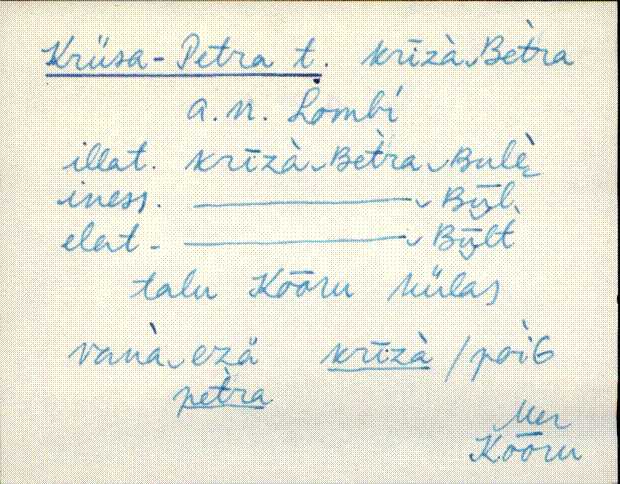 Krüsa-Petra t. krīzà Bètra
a.n. Lombi
illat. krīzà Bètra Bulè
iness. ——— Bȳl
elat - ——— Bȳlt
talu Kōōru külas
vanà ezä krīzà / pòiG
pètra
Mer
Kōōru